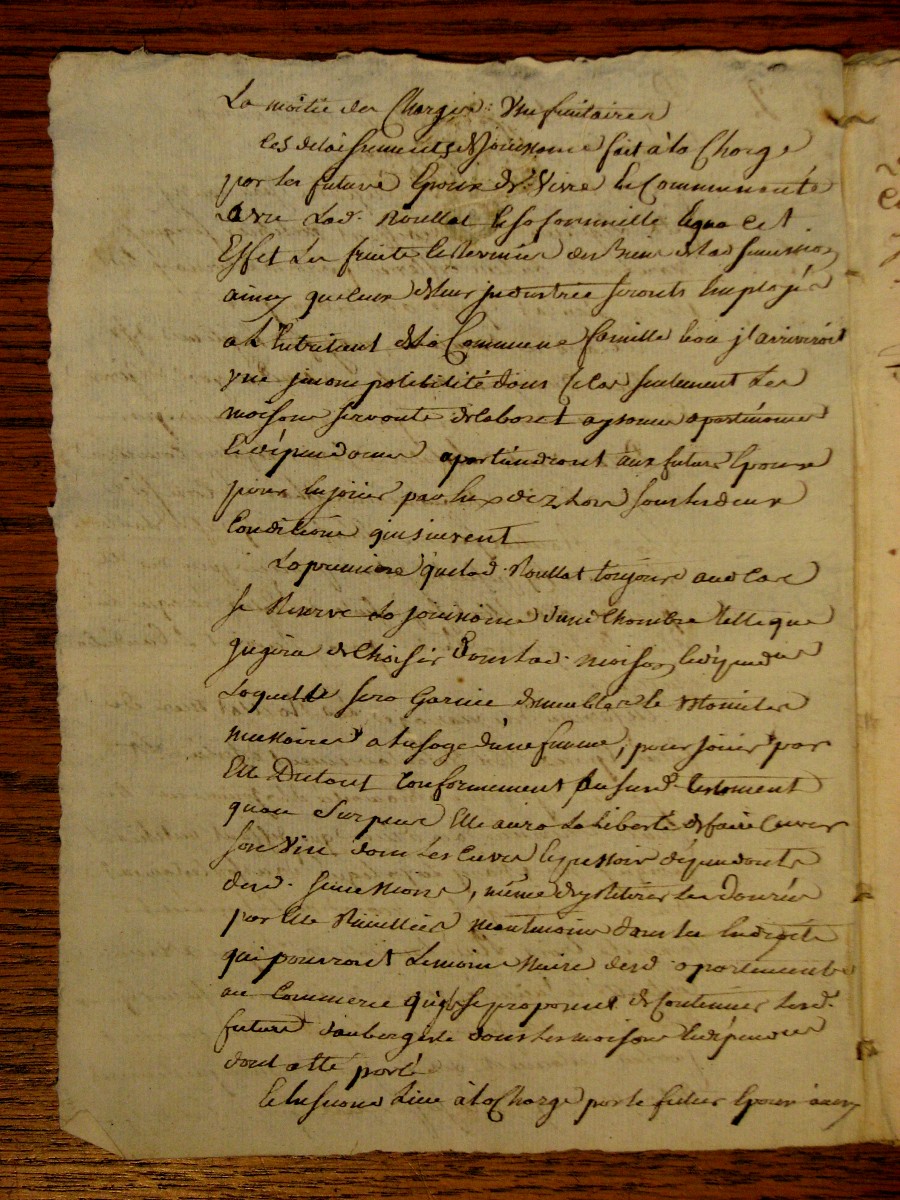 La moitié des Charges Usufruitaires
Ces delaissements & Jouissance fait à la Charge
par les futurs Epoux de vivre En Communauté
avec Lad. Roullat & sa famille & qua Cet
Effet Les fruits & Revenus des Biens de lad succession
ainsy que Ceux de leur jndustrie seronts Employés
a L'entretient de la Commune famille & ou jl arriveroit
une jncompatibilité dans Ce Cas seulement Les
maisons servants de Cabaret apartenances
& dépendances apartiendront aux futurs Epoux
pour En jouir par Eux diz Lors sous les deux
Conditions qui suivent
La premiere que lad. Roullat toujours aud Cas
se Reserve La jouissance d'une Chambre telle que
de Choisir dans lad. maison & dépendances
Laquelle sera Garnie de meubles & Ustanciles
necessaires a l'usage d'une femme, pour jouir par
Elle Dutout Conformement au susd. testament
quau Surplus Elle aura La liberté de faire Cuver
son Vin dans Les Cuves & pressoir dépendants
desd. successions, même dy Retirer Les danrées
par Elle Recuillies neantmoins dans les Endroits
qui pourront Le moins Nuire desd. apartements
au Commerce quils se proposent de Continuer lesd.
futurs d'aubergiste dans les maisons & dépendances
dont a été parlé
En second Lieu à la Charge par le futur Epoux ainsy